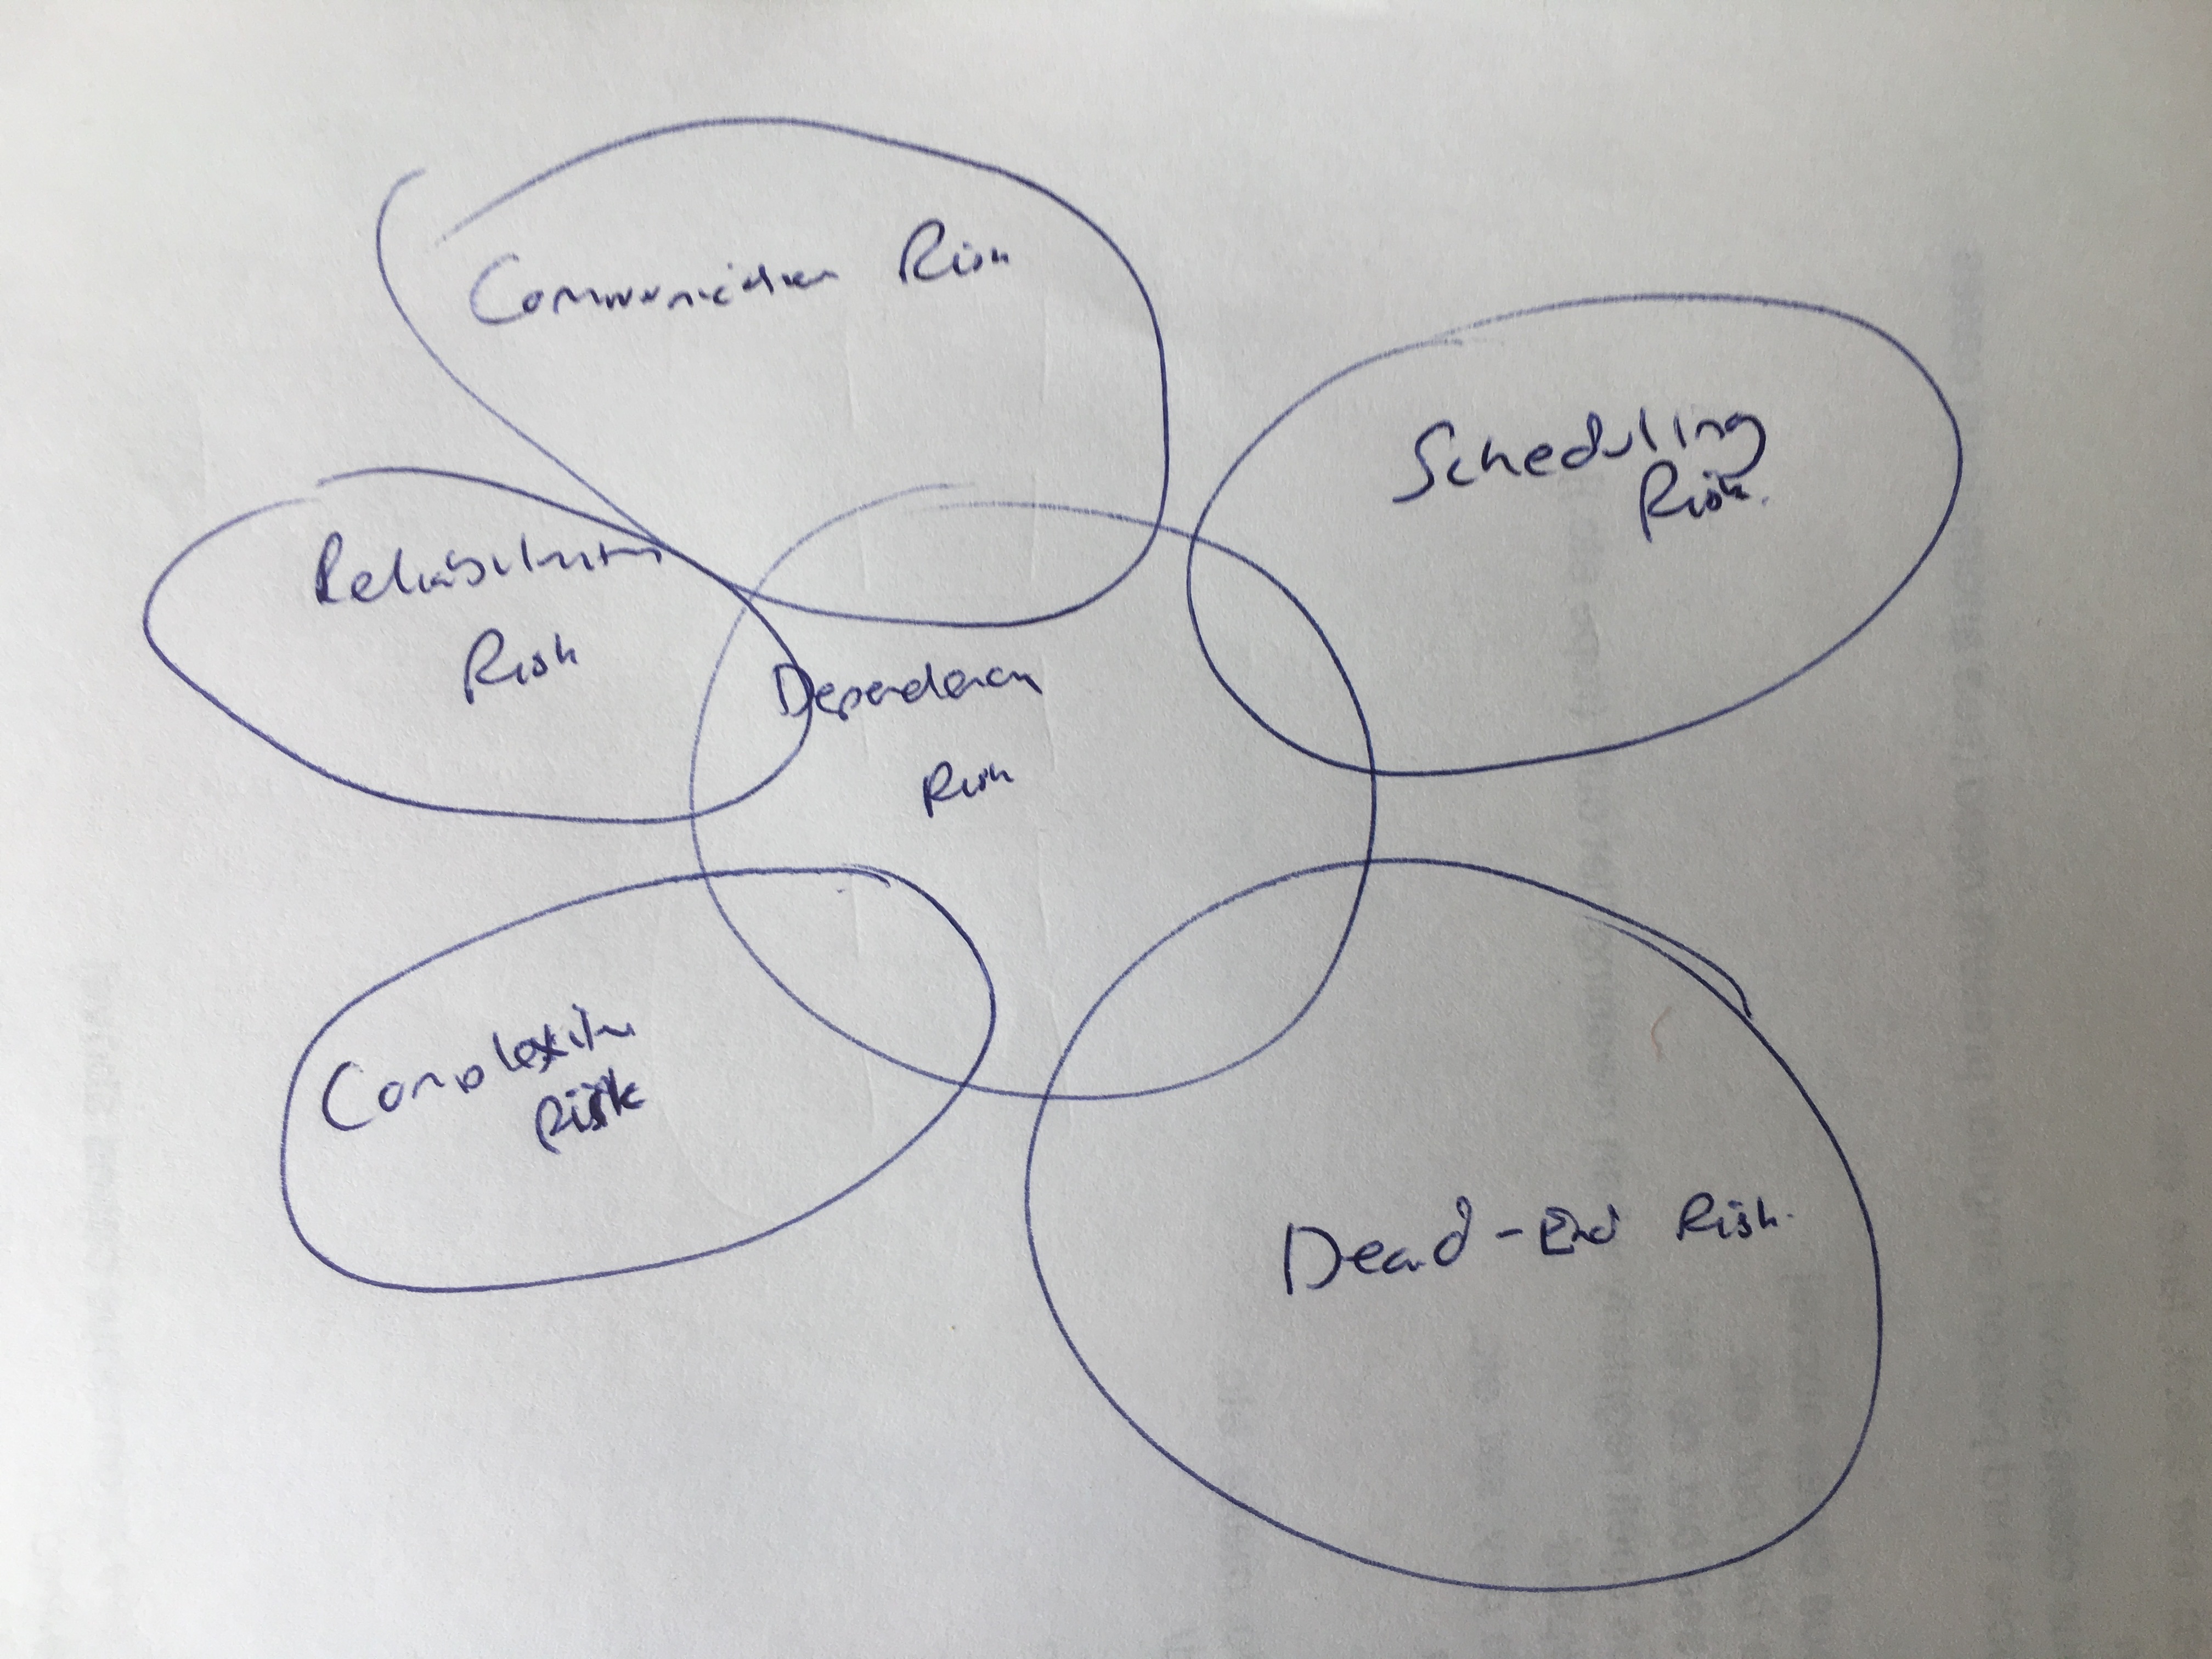 Communication Risk
Scheduling
Risk.
Reliability
Risk
Dependency
Risk
Complexity
Risk
Dead-End Risk.